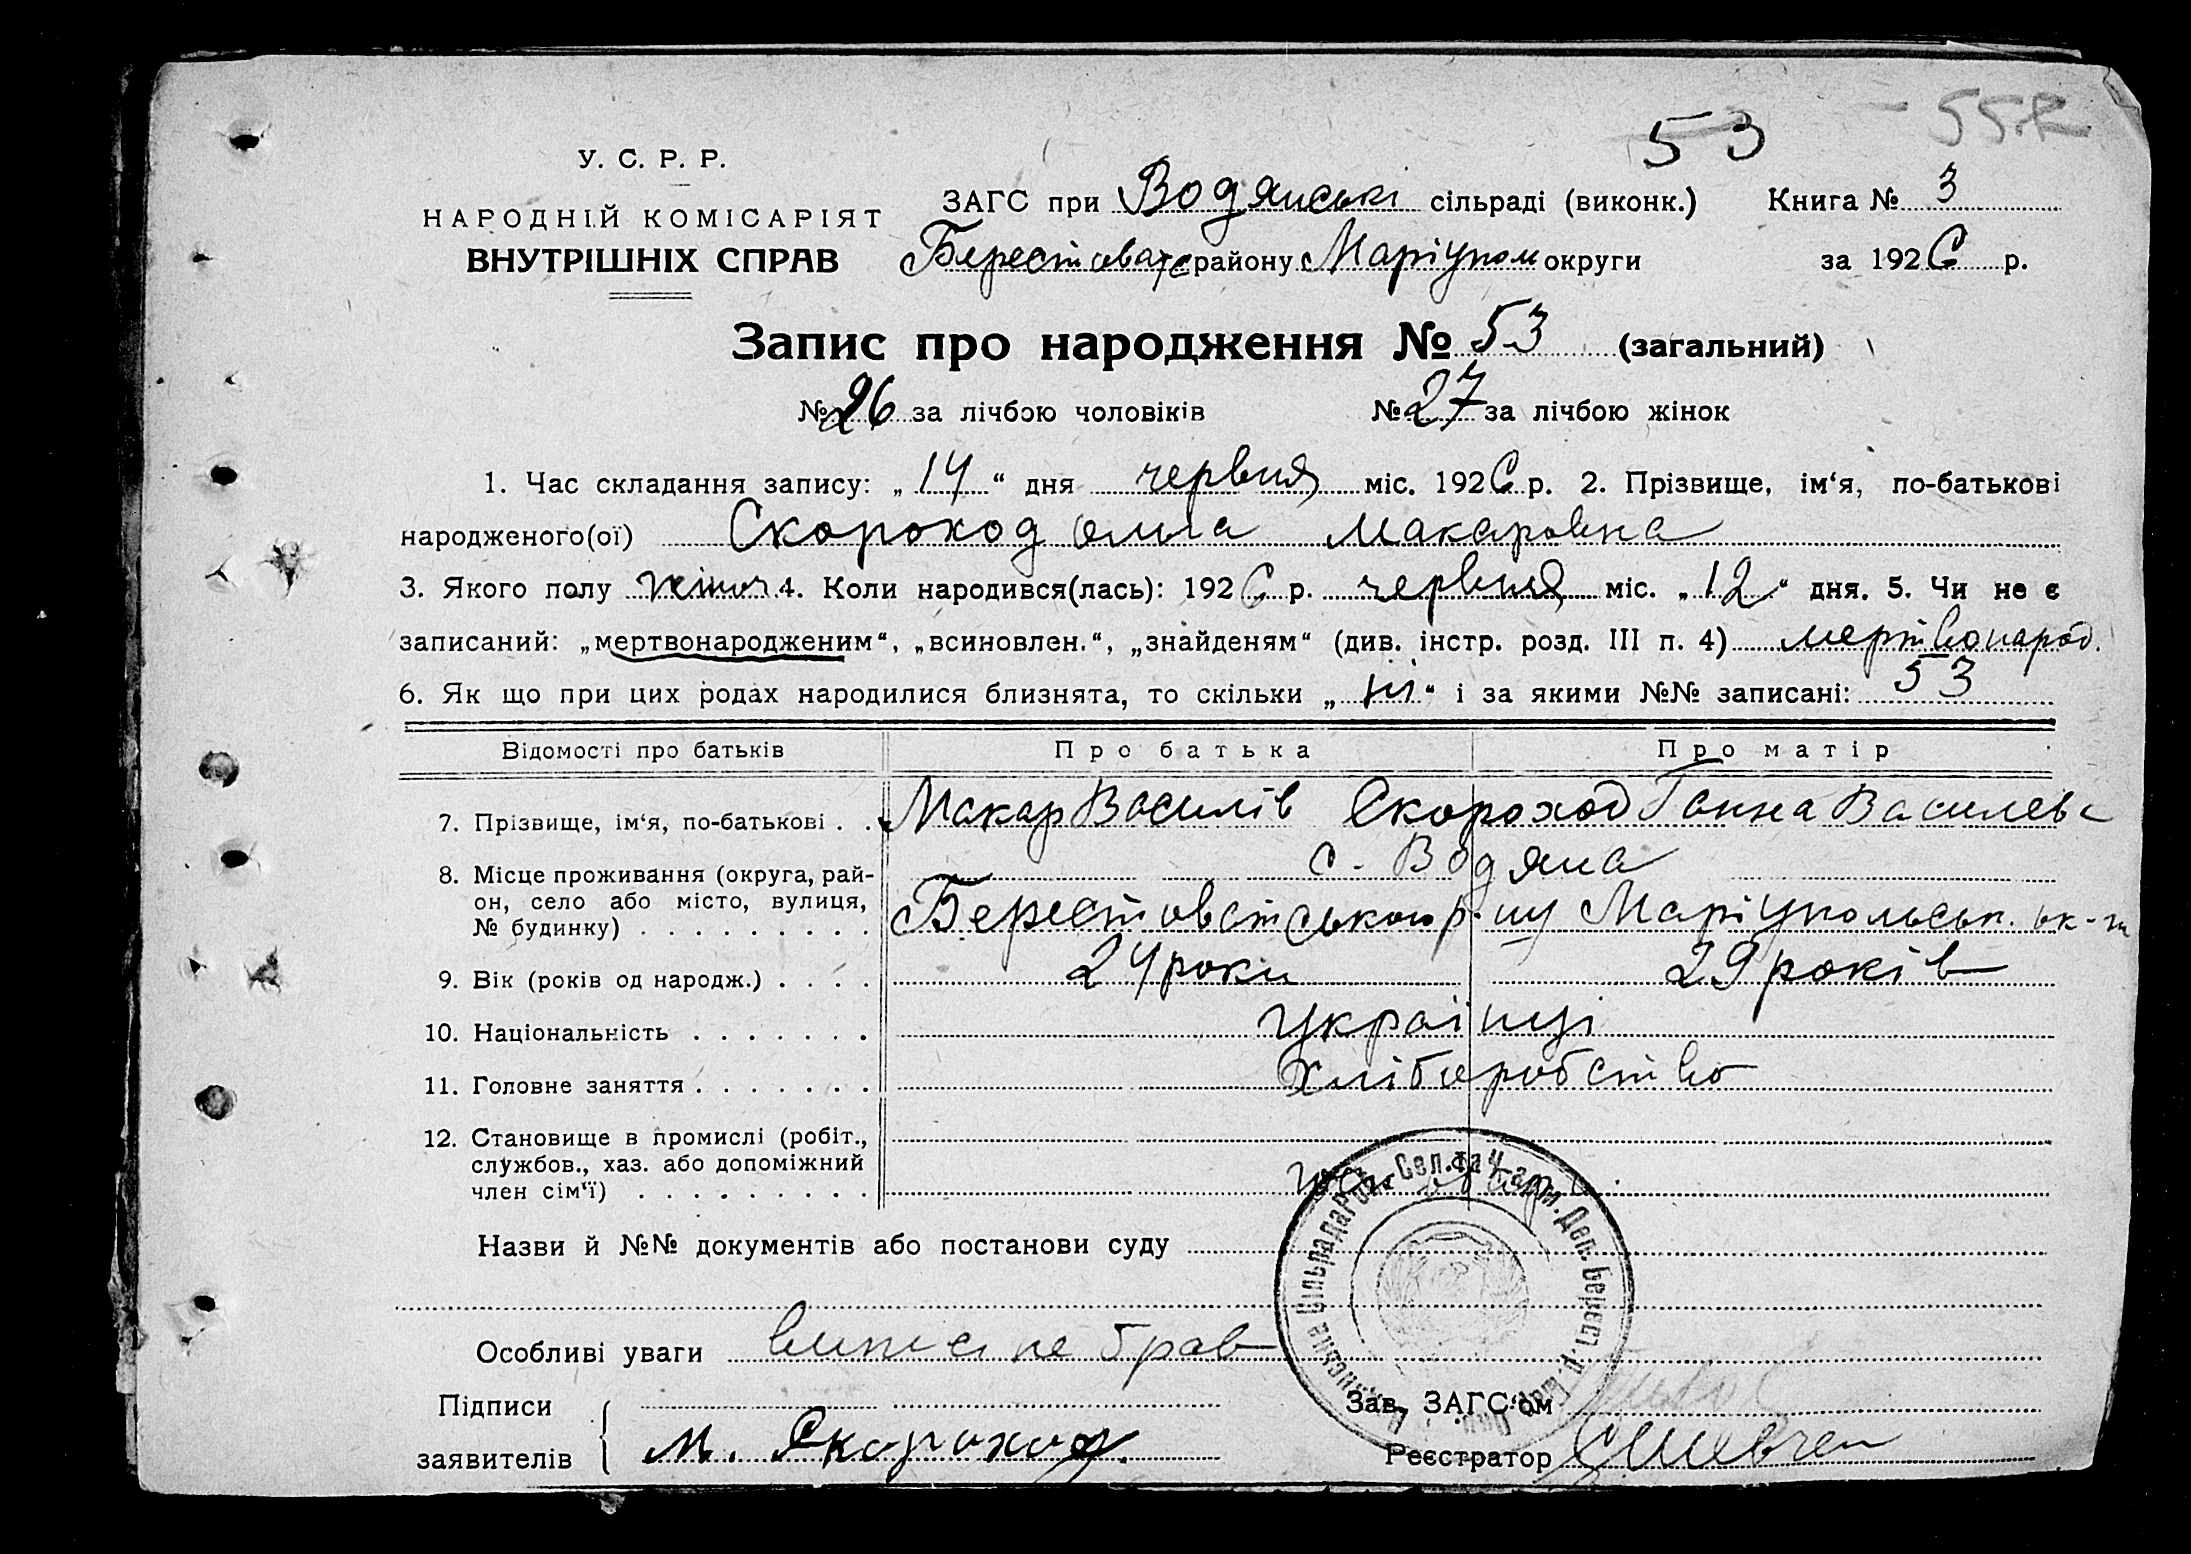 53 - 55R
У. С. Р. Р.
НАРОДНІЙ КОМІСАРІЯТ
ВНУТРІШНІХ СПРАВ
ЗАГС при Водянські сільраді (виконк.) Книга № 3
Берестоватс району Маріупол округи за 1926 р.
Запис про народження № 53 (загальний)
№ 26 за лічбою чоловіків № 27 за лічбою жінок
1. Час складання запису: „14“ дня червня міс. 1926 р. 2. Прізвище, ім‘я, по-батькові
народженого(ої) Скороход Ольга Макаровна
3. Якого полу жіноч 4. Коли народився(лась): 1926 р. червня міс. „12“ дня. 5. Чи не є
записаний: „мертвонародженим“, „всиновлен.“, „знайденям“ (див. інстр. розд. III п. 4) мертвонарод.
6. Як що при цих родах народилися близнята, то скільки „ні“ і за якими №№ записані: 53
Відомості про батьків Про батька Про матір
7. Прізвище, ім‘я, по-батькові . . Макар Василів Скороход Ганна Василевс
8. Місце проживання (округа, рай-
он, село або місто, вулиця,
№ будинку) . . . . . . . . .
с. Водяна
Берестоватського р-ну Маріупольськ. ок-ги
9. Вік (років од народж.) . . . . 24 роки 29 років
10. Національність . . . . . . . українці
11. Головне заняття . . . . . . . хліборобство
12. Становище в промислі (робіт.,
службов., хаз. або допоміжний
член сім‘ї) . . . . . . . . .
Назви й №№ документів або постанови суду
Особливі уваги виписі не брав
Підписи
заявителів М. Скороход.
Зав. ЗАГС‘ом
Реєстратор СШевчен